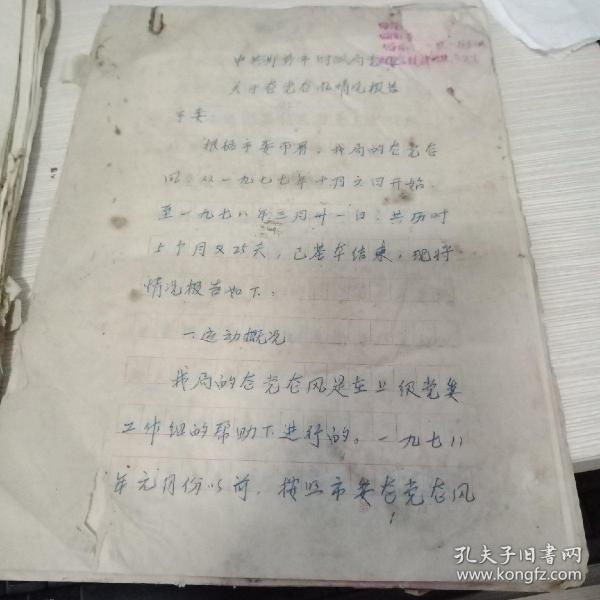 中共邯郸市财政局党
关于整党整风情况报告
市委
根据市委布署，我局的整党整
风，从一九七七年十月六日开始，
至一九七八年三月卅一日，共历时
5个月又25天，已基本结束，现将
情况报告如下：
一、运动概况
我局的整党整风是在上级党委
工作组的帮助下进行的。一九七八
年元月份以前，按照市委整党整风
1
孔夫子旧书网
www.kongfz.com